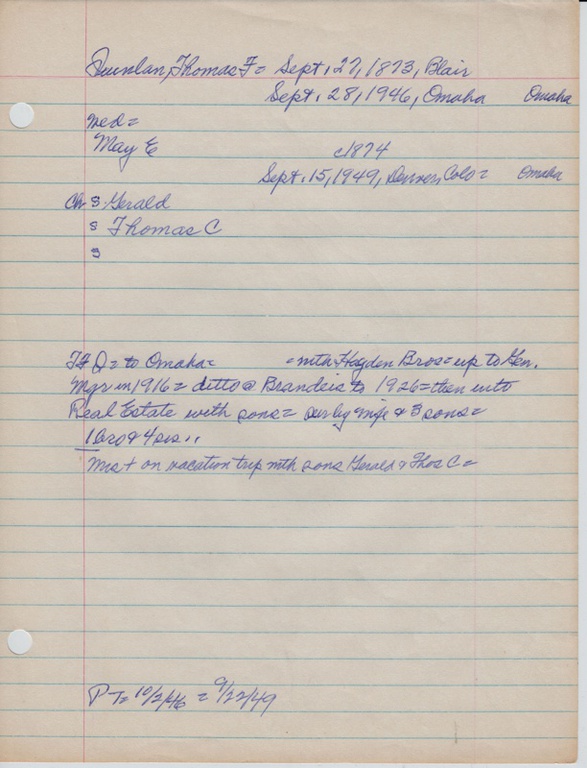 Quinlan, Thomas F = Sept. 27, 1873, Blair
Sept. 28, 1946, Omaha Omaha
med =
May E c1874
Sept. 15, 1949, Denver, Colo = Omaha
Ch S Gerald
S Thomas C
S
TFQ = to Omaha = = with Hayden Bros = up to Gen.
Mgr in 1916 = ditto @ Brandeis to 1926 = then into
Real Estate with sons = sur by wife & 3 sons =
1 bro & 4 sis ..
Mrs + on vacation trip with sons Gerald & Thos C =
PT = 10/3/46 = 9/22/49